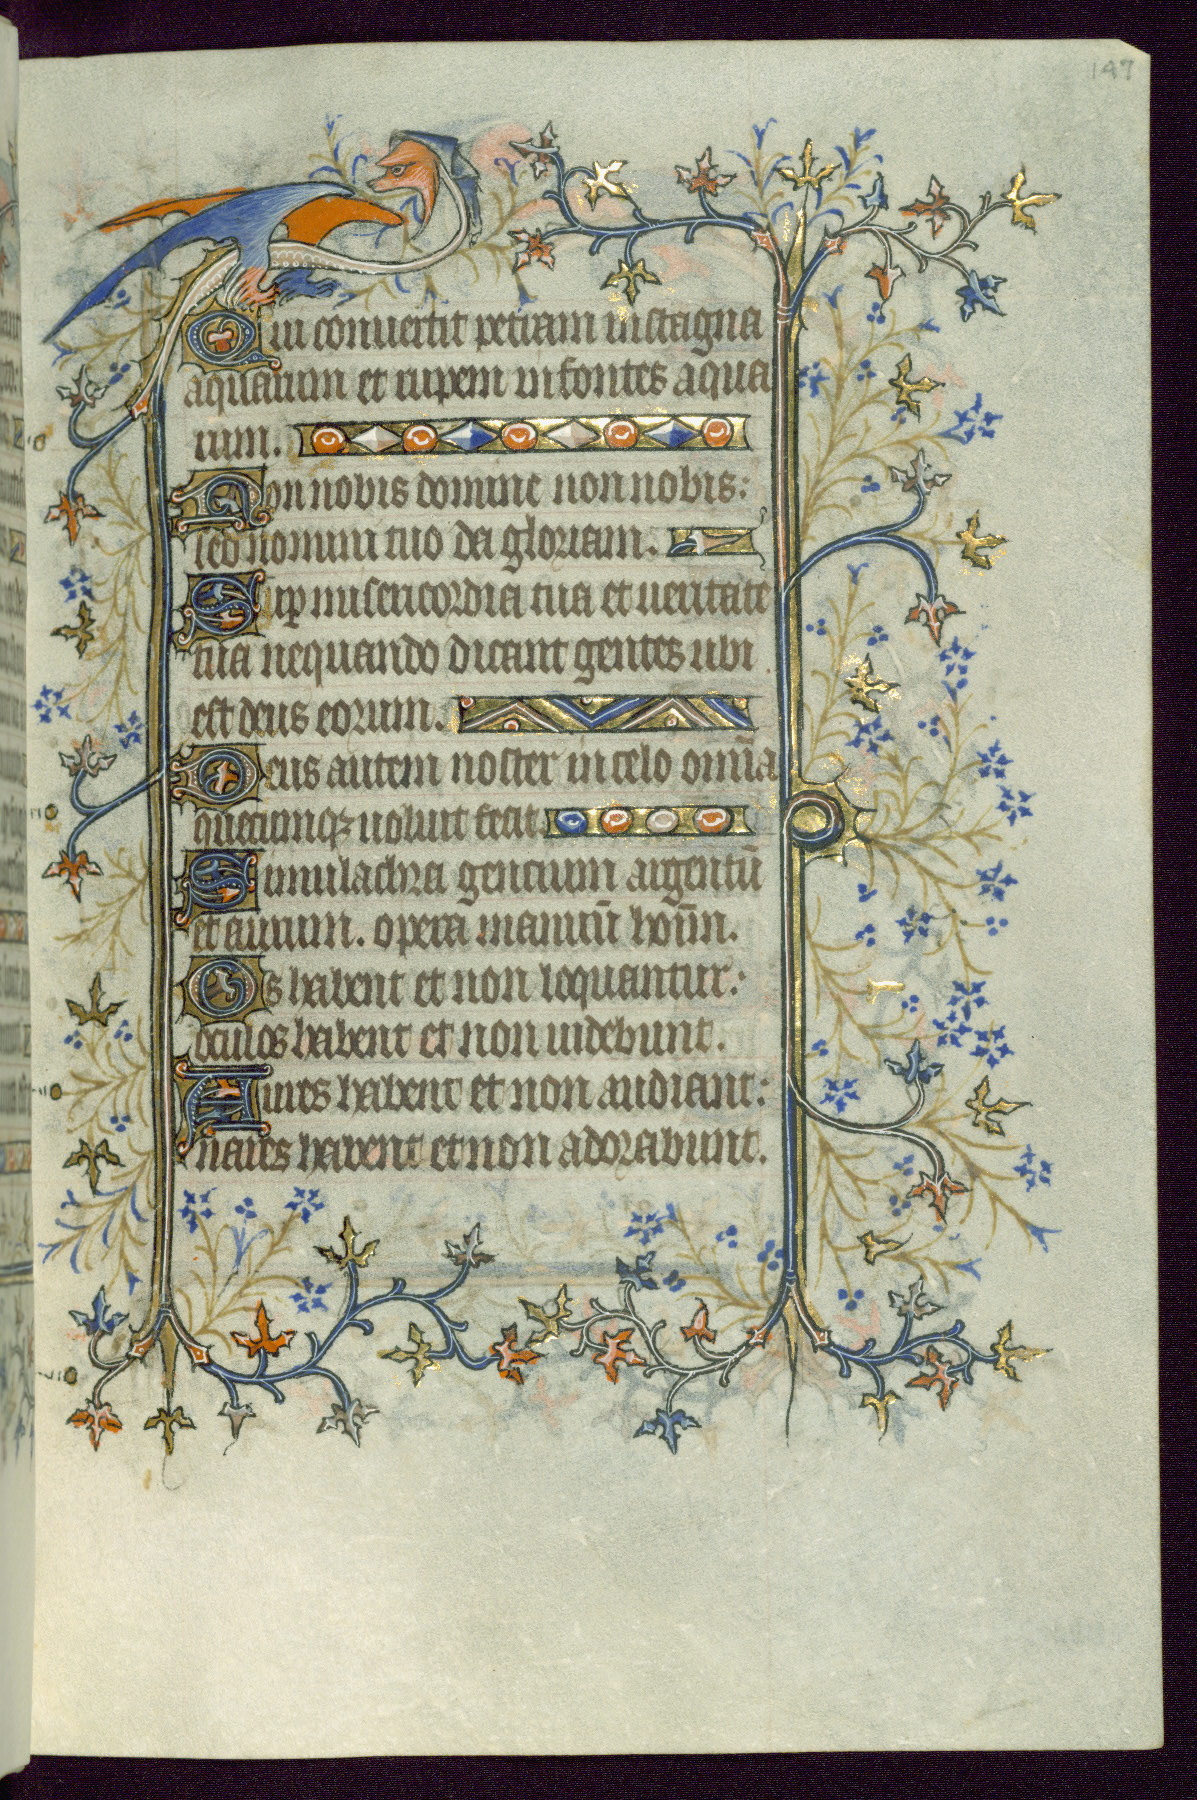 147
Qui conuertit petram in stagna
aquarum et rupem in fontes aqua
rum.
Non nobis domine non nobis:
sed nomini tuo da gloriam.
Sup misericordiā tua et ueritate
tua nequando dicant gentes ubi
est deus eorum.
Deus autem noster in celo omīa
quecumqꝫ uoluit fecit
Simulachra gentium argentū
et aurum. opera manuū hoīm.
Os habent et non loquantur:
oculos habent et non uidebunt.
Aures habent et non audiant:
nares habent et non adorabunt.